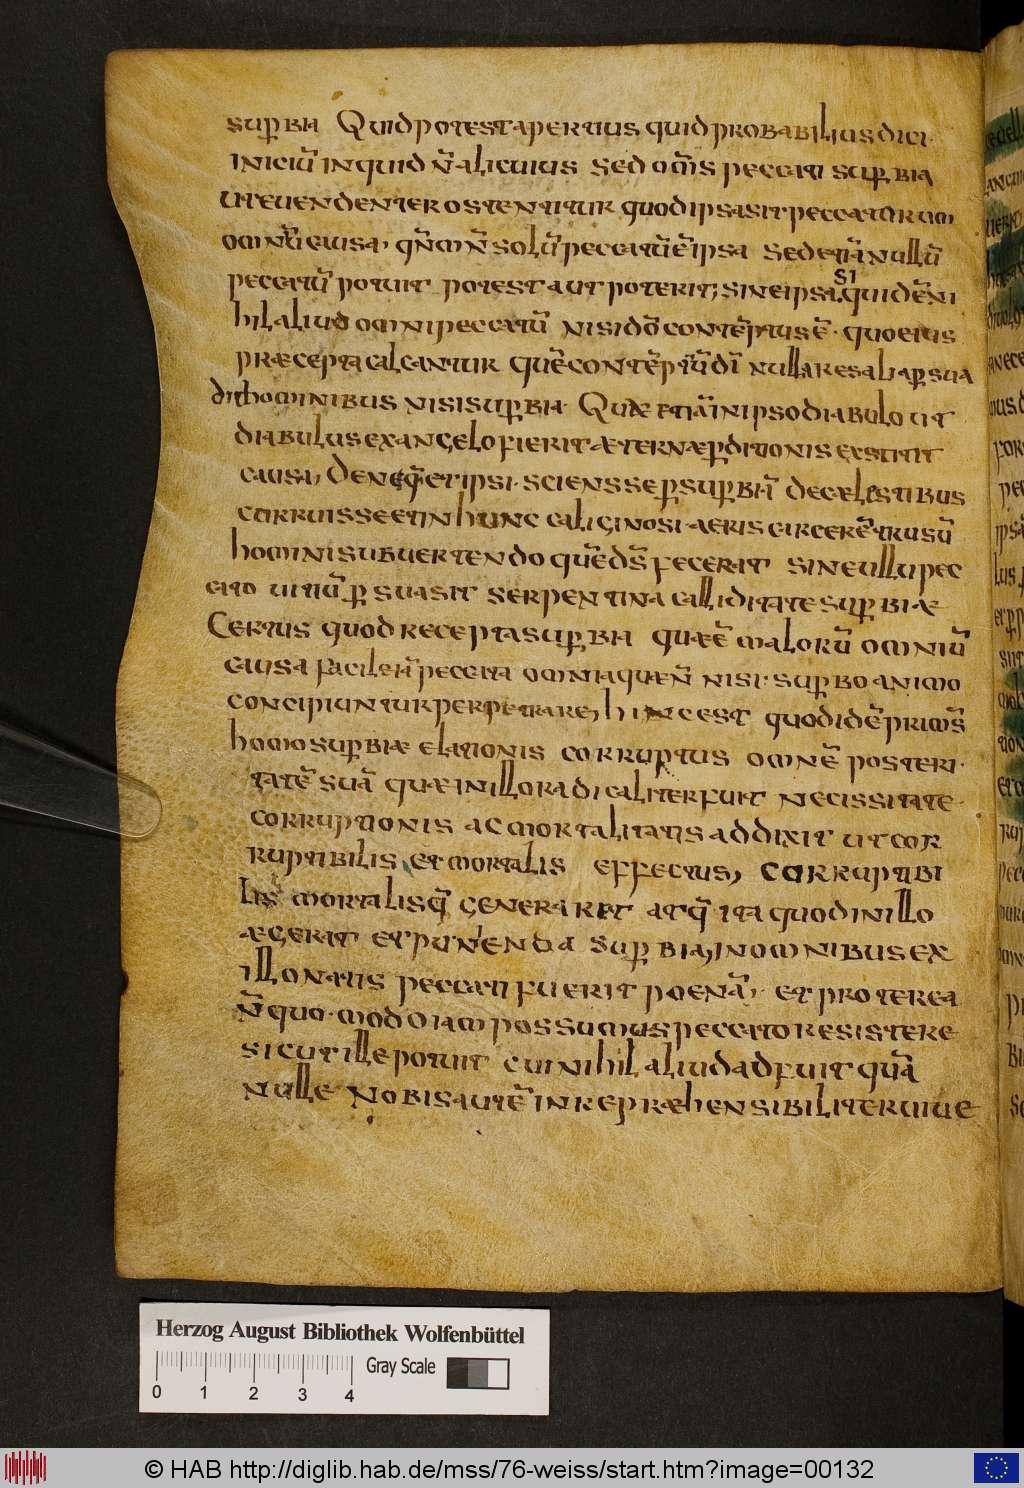 sup̱bia Quid potest apertius quid probabilius dici·
iniciū inquid n̄ alicuius sed om̄s peccati sup̱bia
ut evendenter ostentitur quod ipsa sit peccatorum
omniū causa, qn̄ in n̄ solū peccatū ē ipsa sed etiā nullū
peccatū potuit potest aut poterit, sine ipsa, siquidē ni
hil aliud omni peccatū nisi dō contēptus ē· quo eius
præcepta calcantur quē contēptū dī nulla res alia p̱sua
dit hominibus nisi sup̱bia· Quæ etiā in ipso diabulo ut
diabulus ex angelo fierit æternæ p̱ditionis exstitit
causa, Deneq̄ et ipsi· sciens se p̱ sup̱biā de cælestibus
corruisse et in hunc caliginosi aeris carcerē trusū
homini subuertendo quē d̄s fecerat sine ullu pec
cato uitiū p̱suasit serpentina calliditate sup̱biæ
Certus quod recepta sup̱bia quæ ē malorū omniū
causa facile iā peccata omnia quæ n̄ nisi· sup̱bo animo
concipiuntur perpetrare, hinc est quod idē prim̄s
homo sup̱biæ elationis corruptus omnē posteri·
tatē suā quæ in illo radicaliter fuit necissitate·
corruptionis ac mortalitatis addixit ut cor
ruptibilis et mortalis effectus, corruptibi
lis mortalisq̄ generaret atq̄ ita quod in illo
ægerat et punienda sup̱bia, in omnibus ex
illo natis peccati fuerit poenā, et proterea
n̄ quo·modo iam possumus peccato resistere
sicut ille potuit cui nihil aliud adfuit quā
nulle nobis autē inrepræhensibiliter uiue
Herzog August Bibliothek Wolfenbüttel
Gray Scale
0 1 2 3 4
© HAB http://diglib.hab.de/mss/76-weiss/start.htm?image=00132